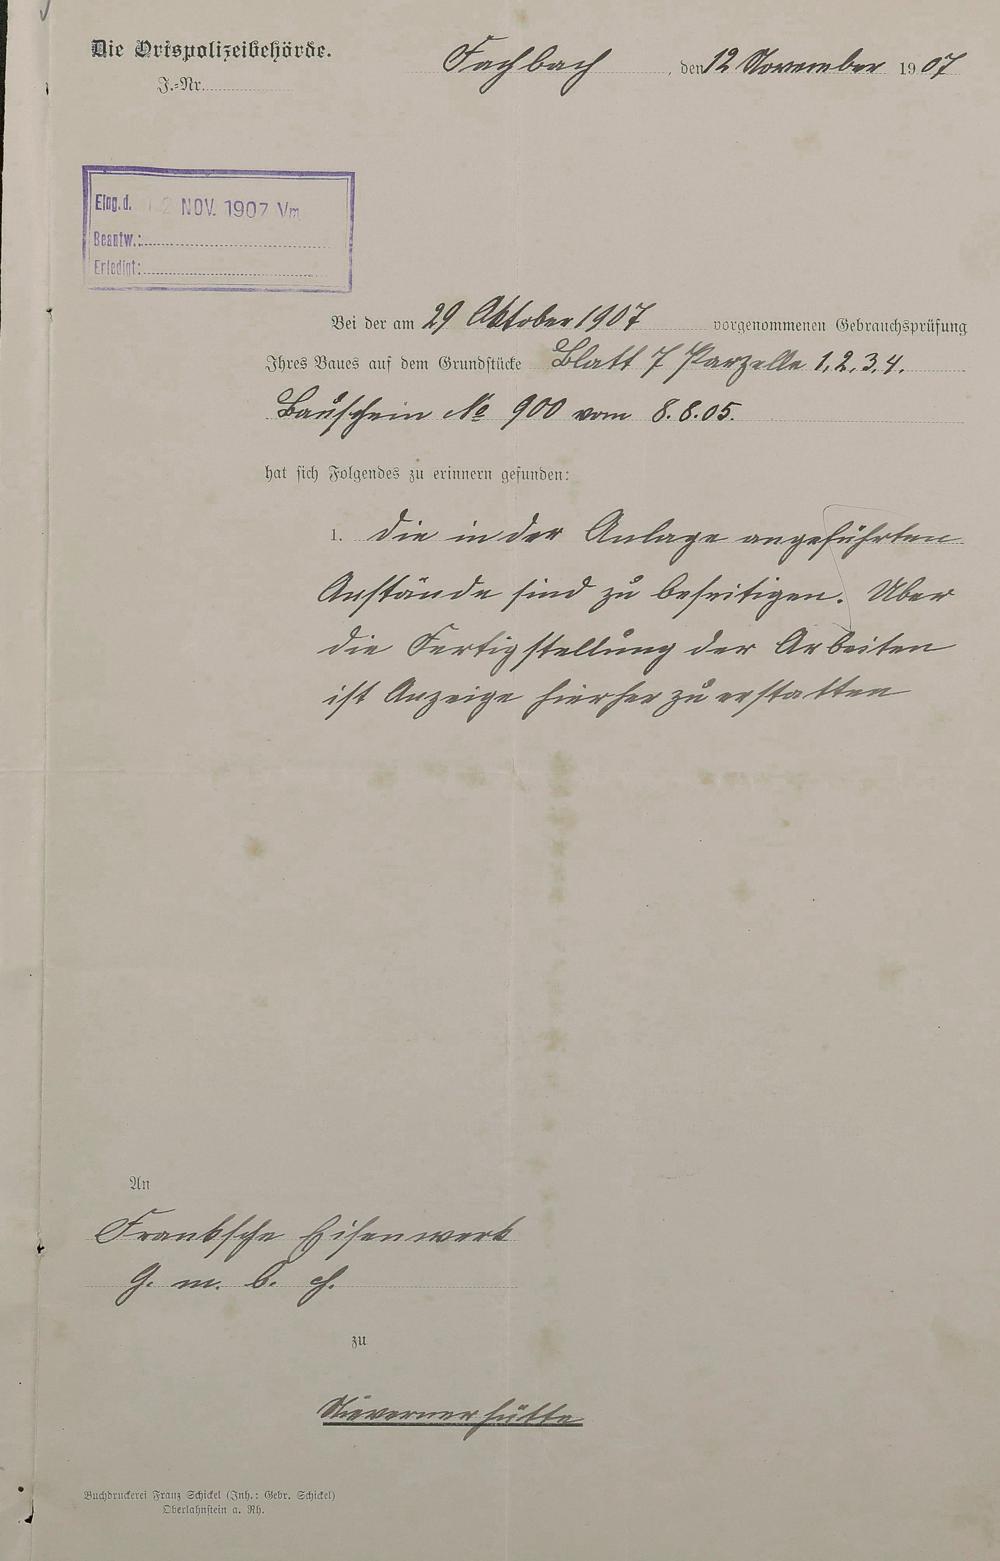 Die Ortspolizeibehörde.
J.-Nr.
Fachbach, den 12 November 1907
Eing. d. 12 NOV. 1907 Vm
Beantw.:
Erledigt:
Bei der am 29 Oktober 1907 vorgenommenen Gebrauchsprüfung
Ihres Baues auf dem Grundstücke Blatt 7 Parzelle 1, 2, 3, 4.
Bauschein No 900 vom 8.8.05.
hat sich Folgendes zu erinnern gefunden:
1. die in der Anlage angeführten
Anstände sind zu beseitigen. Über
die Fertigstellung der Arbeiten
ist Anzeige hierher zu erstatten
An
Franksche Eisenwerk
G. m. b. H.
zu
Nievernerhütte
Buchdruckerei Franz Schickel (Inh.: Gebr. Schickel)
Oberlahnstein a. Rh.